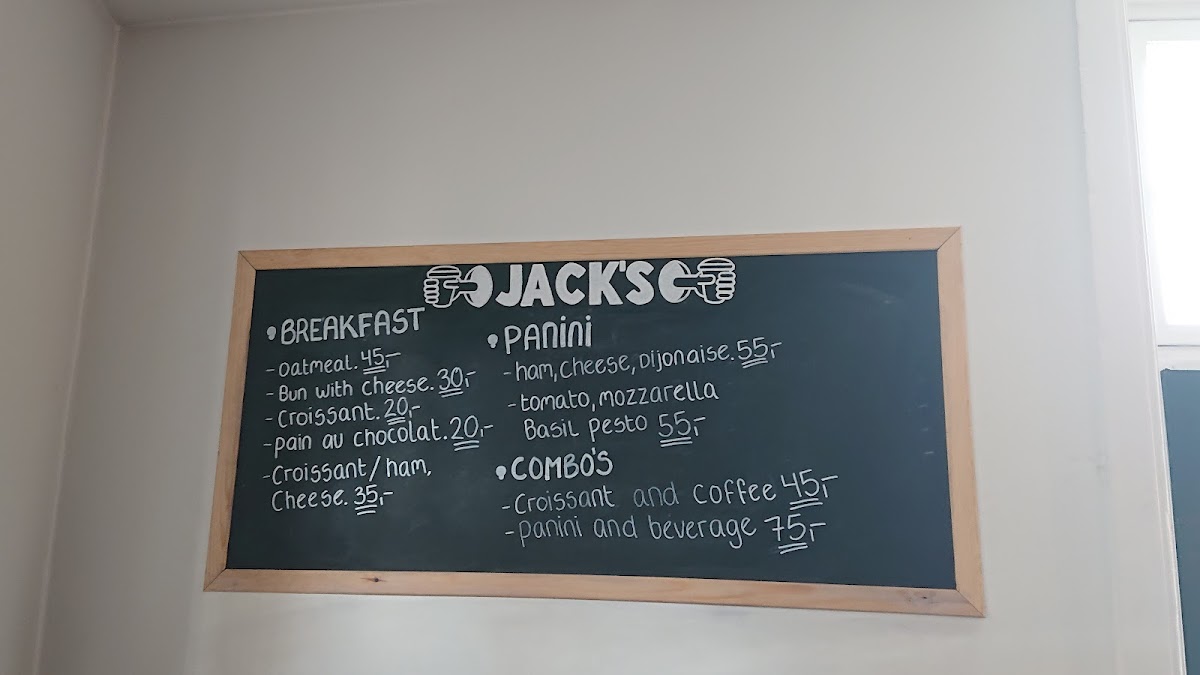 JACK'S
BREAKFAST
- oatmeal. 45,-
- Bun with cheese. 30,-
- Croissant. 20,-
- pain au chocolat. 20,-
- Croissant/ham,
Cheese. 35,-
Panini
- ham, cheese, Dijonaise. 55,-
- tomato, mozzarella
Basil pesto 55,-
COMBO'S
- Croissant and coffee 45,-
- panini and beverage 75,-